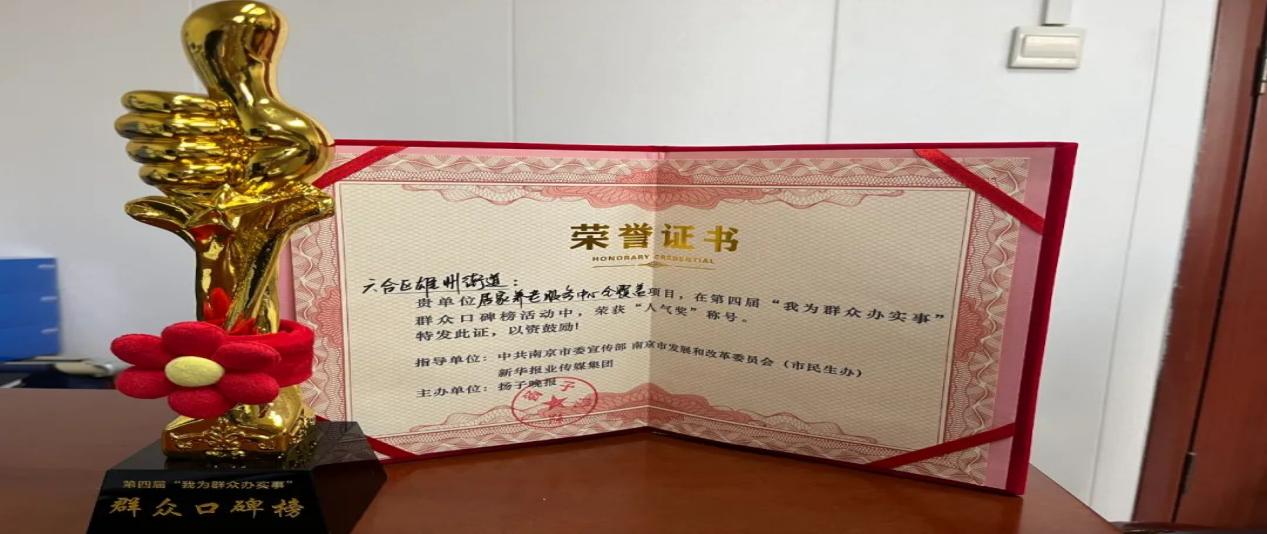 荣誉证书
HONORARY CREDENTIAL
六合区雄州街道：
贵单位居家养老服务中心全覆盖项目，在第四届“我为群众办实事”
群众口碑榜活动中，荣获“人气奖”称号。
特发此证，以资鼓励！
指导单位：中共南京市委宣传部 南京市发展和改革委员会（市民生办）
新华报业传媒集团
主办单位：扬子晚报
第四届“我为群众办实事”
群众口碑榜